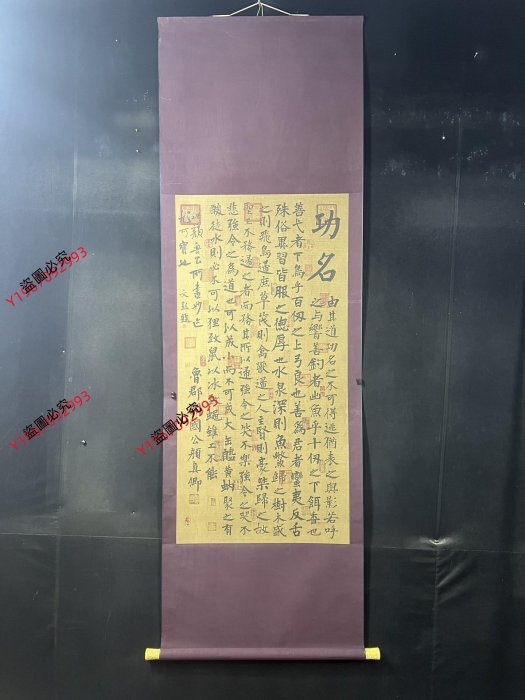 功名
由其道功名之不可得逃猶表之與影若呼
之与響善釣者出魚乎十仞之下餌香也
善弋者下鳥乎百仞之上弓良也善為君者蠻夷反舌
殊俗異習皆服之德厚也水泉深則魚鱉歸之樹木盛
則飛鳥庶草茂則禽獸之人主賢則豪桀歸之故
聖王不務之者而務其所以強令之笑不樂強令之哭不
悲強令之為道也可以成小而不可成大缶醯黃蚋聚之有
酸徒水則必不可以狸致鼠以冰致蠅雖工不能
魯郡開國公顏真卿
顏魯公所書妙迹
可寶也
盜圖必究
盜圖必究